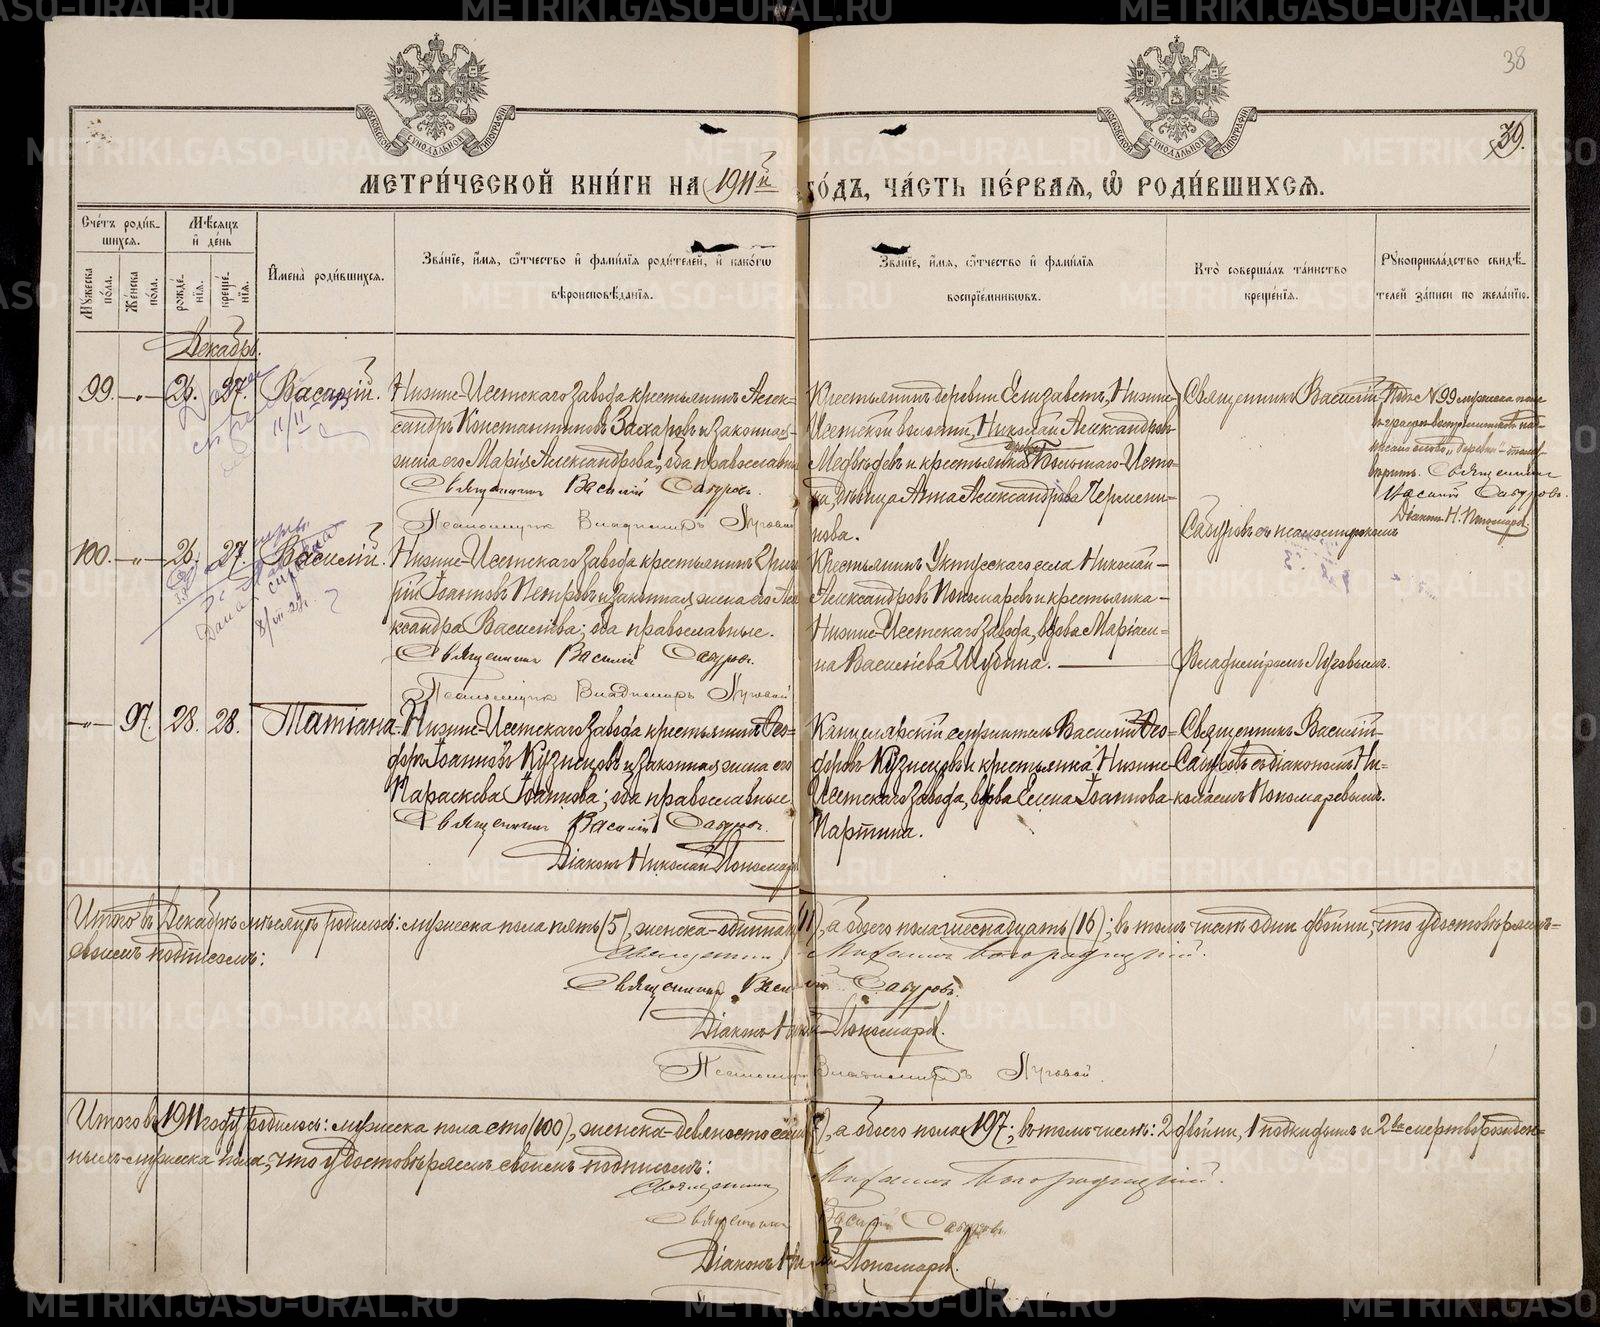 38
39.
МОСКОВСКОЙ СУНОДАЛЬНОЙ ТИПОГРАФІИ
МОСКОВСКОЙ СУНОДАЛЬНОЙ ТИПОГРАФІИ
МЕТРИ́ЧЕСКОЙ КНИ́ГИ НА 1911й ГО́ДЪ, ЧА́СТЬ ПЕ́РВАЯ, Ѡ РОДИ́ВШИХСЯ.
Сче́тъ роди́в-
шихся.
Мѣ́сяцъ
и де́нь
Мꙋ́жеска по́ла.
Же́нска по́ла.
рожде́-
нїя.
креще́-
нїя.
Имена̀ роди́вшихся.
Зва́нїе, и́мя, ѻ́тчество и фами́лїя роди́телей, и како́гѡ
вѣроисповѣ́данїя.
Зва́нїе, и́мя, ѻ́тчество и фами́лїя
воспрїе́мникѡвъ.
Кто̀ соверша́лъ та́инство
креще́нїя.
Рꙋкоприкла́дство свидѣ́-
телей за́писи по жела́нїю.
Декабрь.
99. -"- 26. 27. Василій.
Нижне-Исетскаго завода крестьянинъ Алек-
сандръ Константиновъ Захаровъ и законная
жена его Марія Александрова; оба православные
Священникъ Василій Сабуровъ.
Псаломщикъ Владимиръ Луговой
Крестьянинъ деревни Елизаветъ, Нижне-
Исетской волости, Николай Александровъ
Медвѣдевъ и крестьянка Большаго Исто-
ка, дѣвица Анна Александрова
нова.
Священникъ Василій
Сабуровъ съ псаломщикомъ
№ 99 мужеска пола
Священникъ
Василій Сабуровъ.
Діаконъ Н. Пономаревъ
100. -"- 26. 27. Василій.
Нижне-Исетскаго завода крестьянинъ Григо-
рій Іоанновъ Петровъ и законная жена его Але-
ксандра Васильева; оба православные.
Священникъ Василій Сабуровъ.
Псаломщикъ Владимиръ Луговой
Крестьянинъ Уктусскаго села Николай
Александровъ Пономаревъ и крестьянка
Нижне-Исетскаго завода, вдова
на Васильева Шубина.
Владиміромъ Луговымъ.
-"- 97. 28. 28. Татіана.
Нижне-Исетскаго завода крестьянинъ Ѳео-
доръ Іоанновъ Кузнецовъ и законная жена его
Параскева Іоаннова; оба православные.
Священникъ Василій Сабуровъ.
Діаконъ Николай Пономаревъ
Канцелярскій служитель Василій Ѳео-
доровъ Кузнецовъ и крестьянка Нижне-
Исетскаго завода, вдова Елена Іоаннова
Партина.
Священникъ Василій
Сабуровъ съ діакономъ Ни-
колаемъ Пономаревымъ.
Итого въ Декабрѣ мѣсяцѣ родилось: мужеска пола пять (5), женска - одиннадцать (11), а обоего пола шестнадцать (16); въ томъ числѣ одни двойни; что удостовѣряемъ
своимъ подписомъ:
Священникъ Михаилъ Богородицкій.
Священникъ Василій Сабуровъ.
Діаконъ Николай Пономаревъ.
Псаломщикъ Владимиръ Луговой.
Итого въ 1911 году родилось: мужеска пола сто (100), женска - девяносто семь (97), а обоего пола 197; въ томъ числѣ: 2 двойни, 1 подкидышъ и 2 мертворожден-
нымъ мужеска пола, что удостовѣряемъ своимъ подписомъ:
Священникъ Михаилъ Богородицкій.
Священникъ Василій Сабуровъ.
Діаконъ Николай Пономаревъ.
METRIKI.GASO-URAL.RU